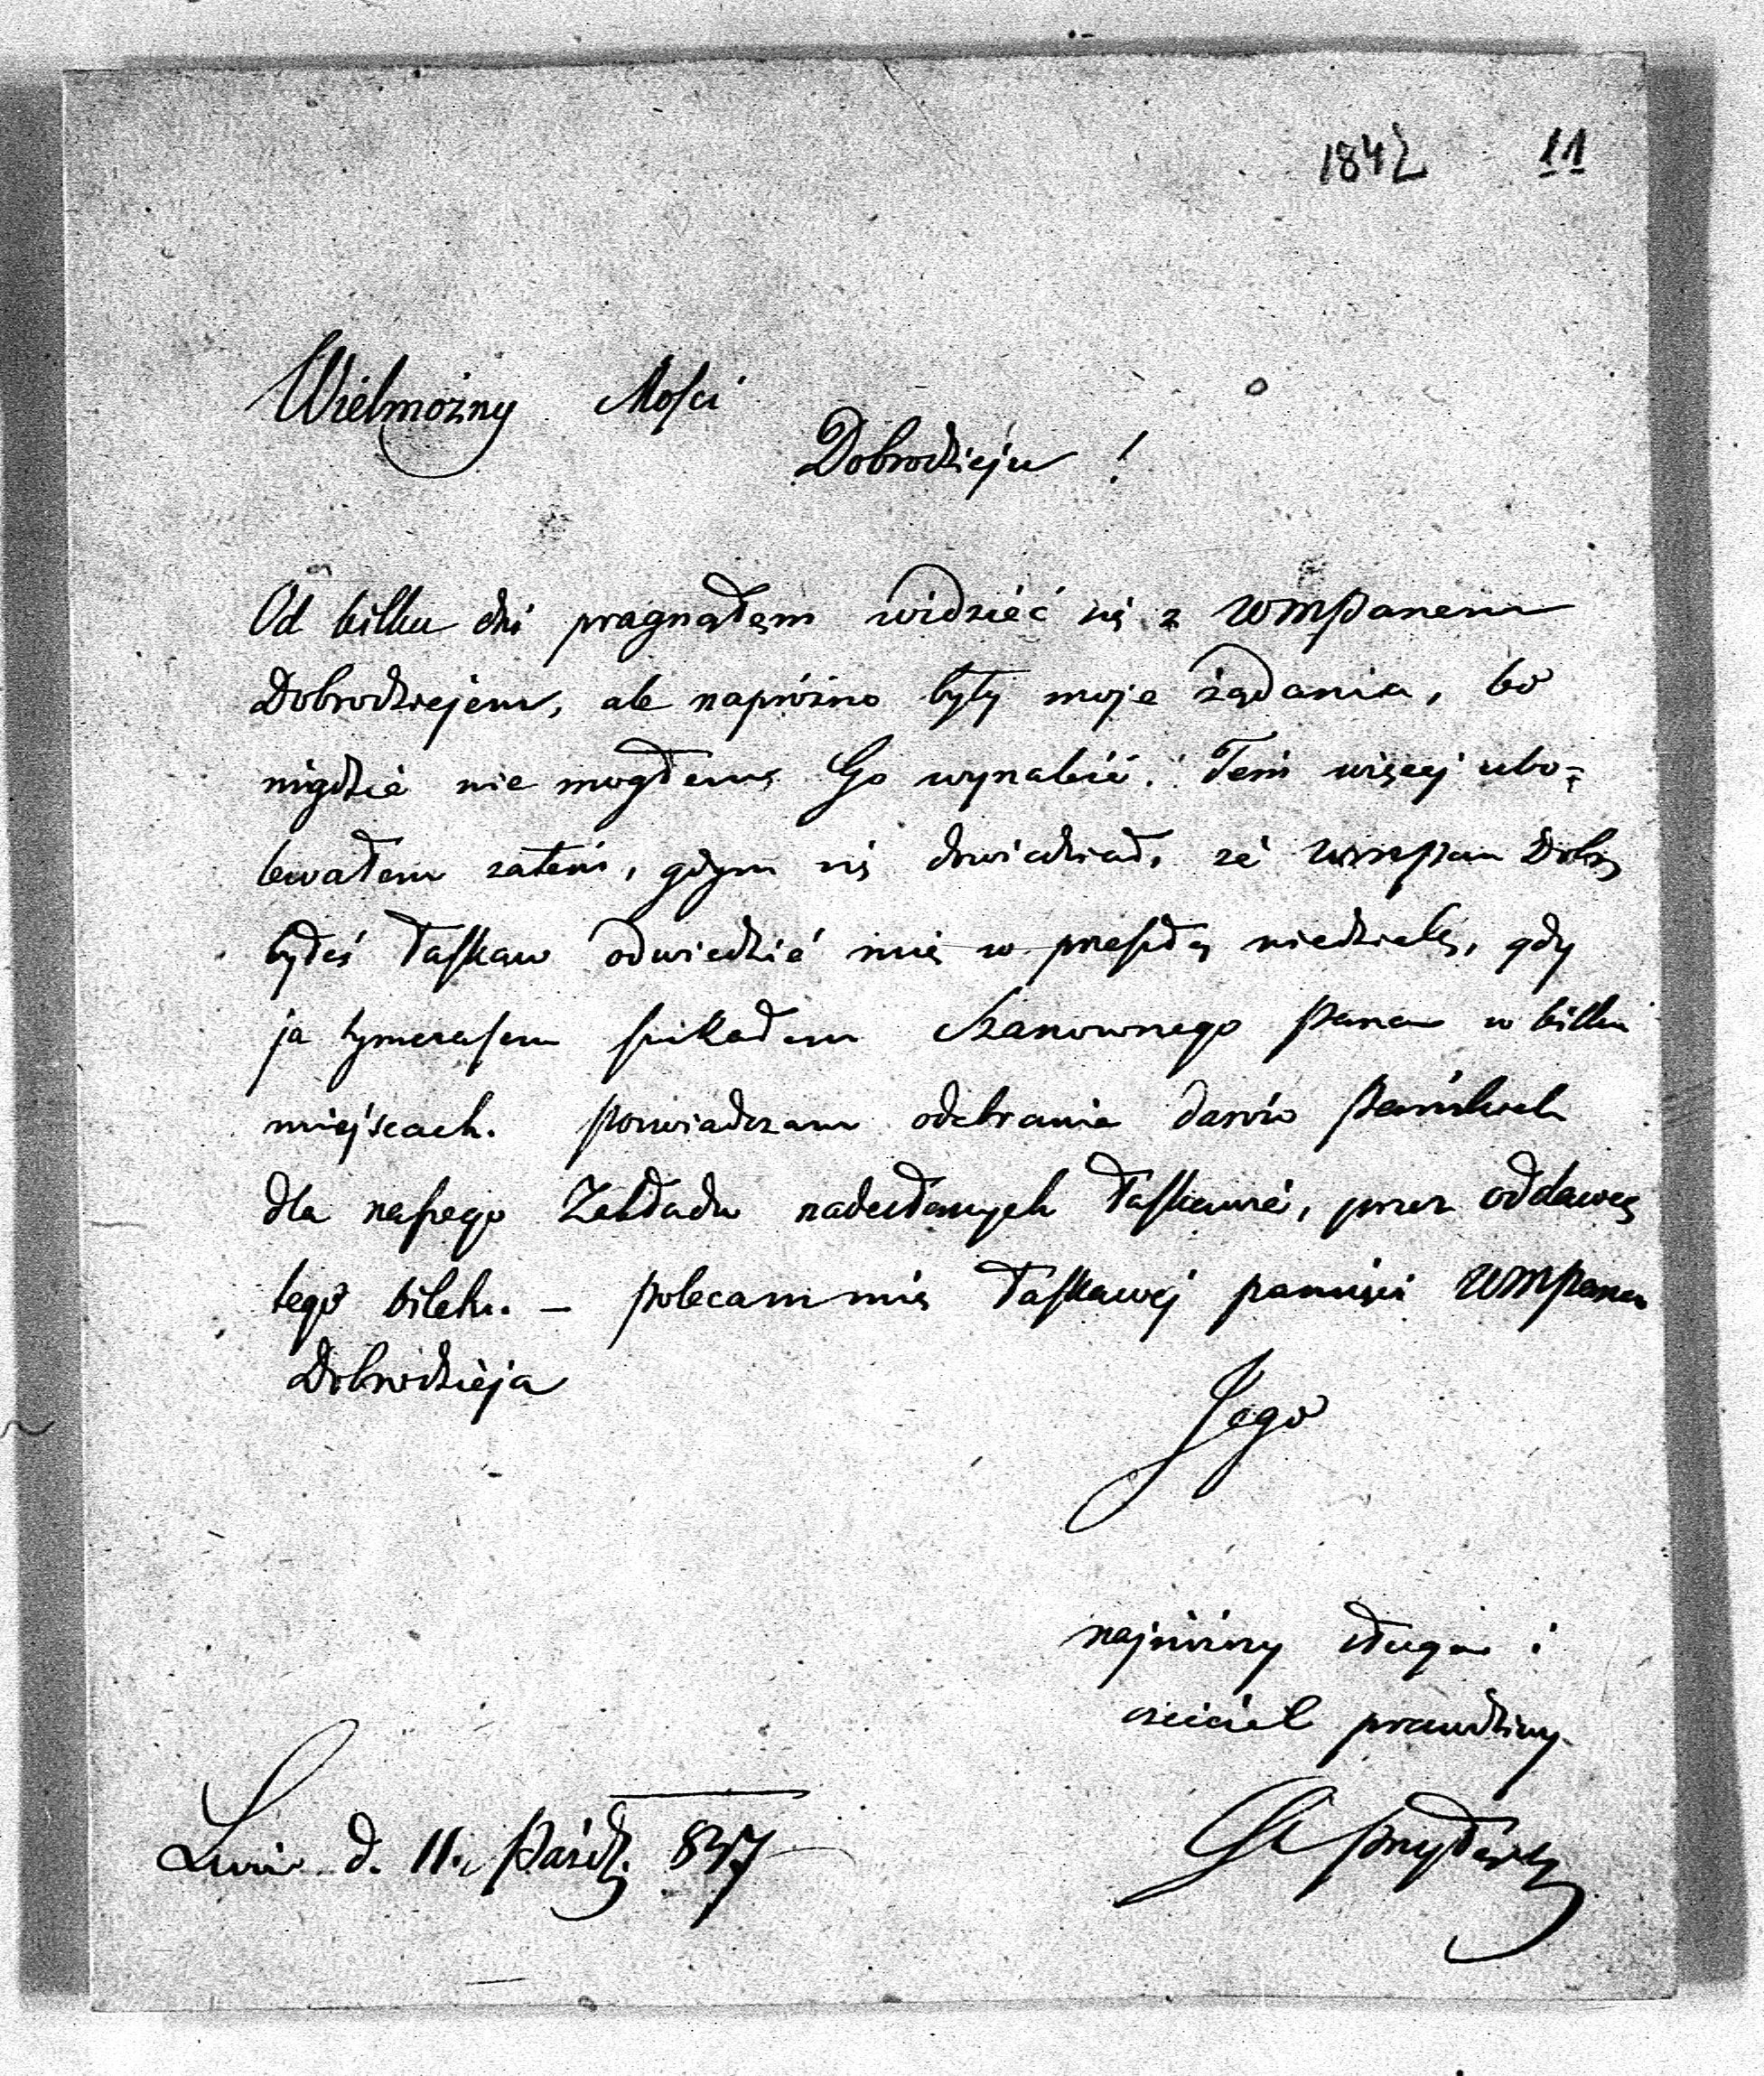 1842 11
Wielmożny Mości
Dobrodzieju !
Od kilku dni pragnąłem widzieć się z WMPanem
Dobrodziejem, ale napróżno były moje żądania, bo
nigdzie nie mogłem Go wynaleść. Tem więcej ubo-
lewałem zatem, gdym się dowiedział, że WMPan Dobr
byłeś łaskaw odwiedzić mię w przeszłą niedzielę, gdy
ja tymczasem szukałem Szanownego Pana w kilku
miejscach. Poświadczam odebranie darów Pańskich
dla naszego Zakładu nadesłanych łaskawie, przez oddawcę
tego biletu. – Polecam mię łaskawej pamięci WMPana
Dobrodzieja
Jego
najniższy sługa i
czciciel prawdziwy
Lwów d. 11. Paźdz. 847